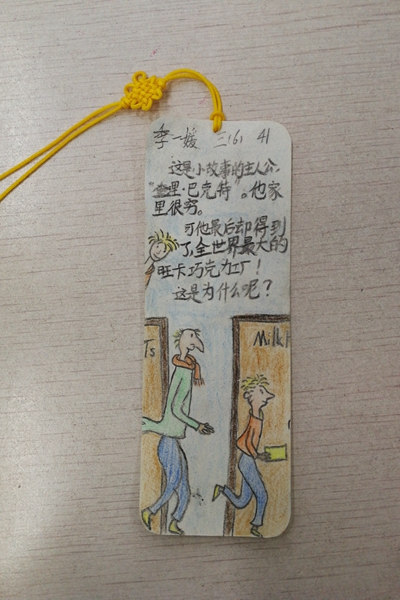 李一媛 三(6) 41
这是小故事的主人公,
"查里·巴克特"。他家
里很穷。
可他最后却得到
了,全世界最大的
旺卡巧克力工厂!
这是为什么呢?
Ts
Milk